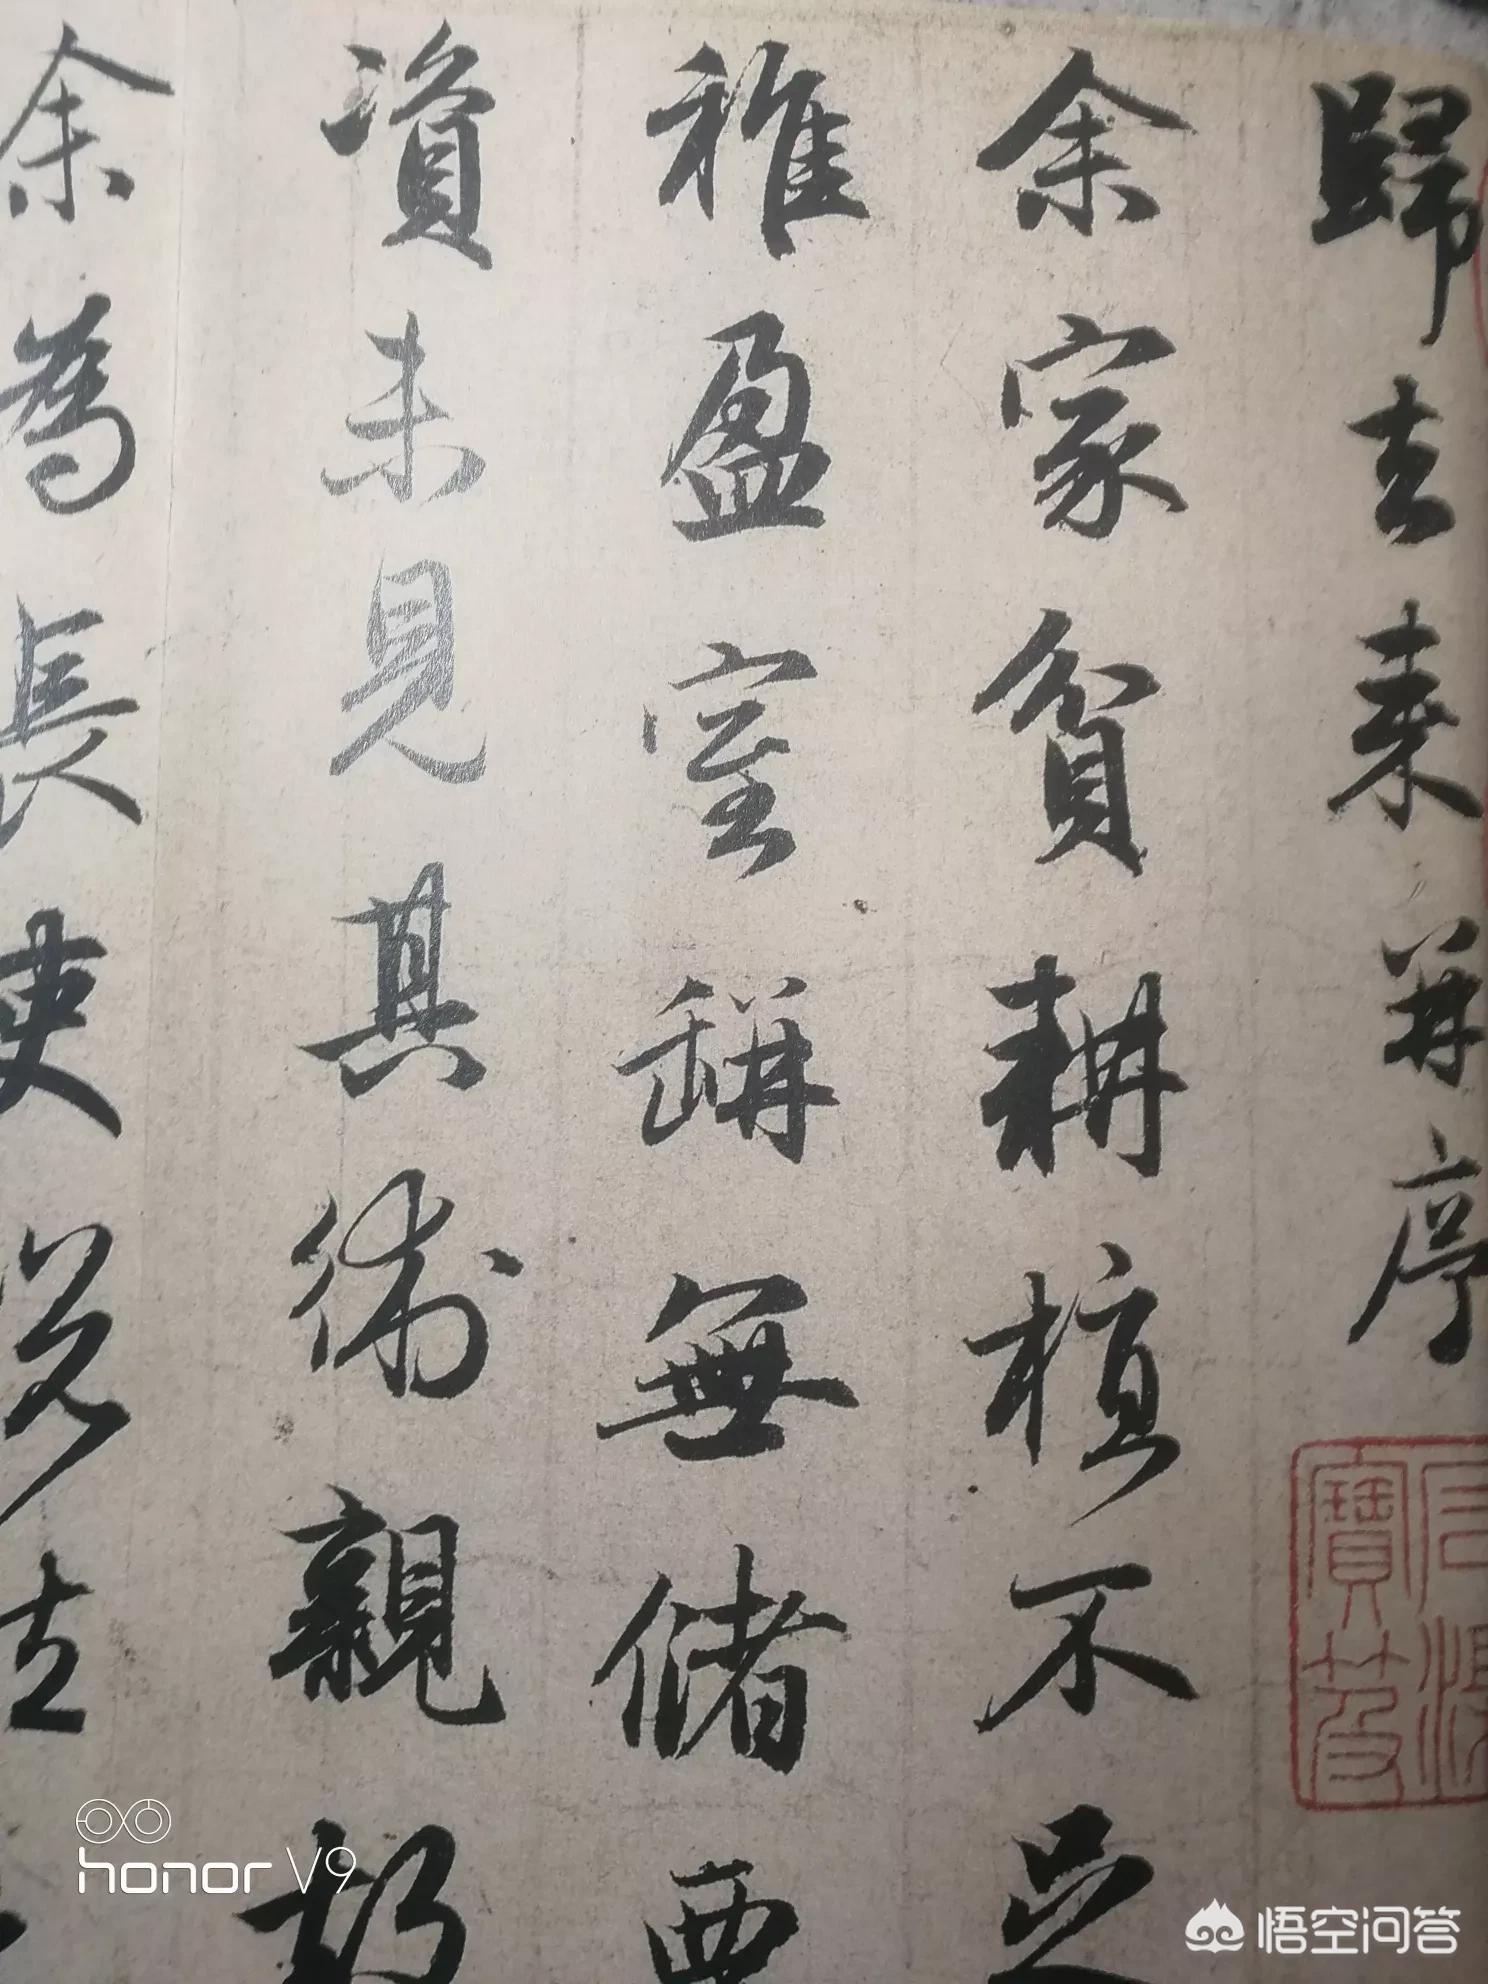 歸去来并序
余家貧耕植不足
稚盈室缾無儲
資未見其術親故
余為長吏
石渠
寶笈
honor V9
悟空问答